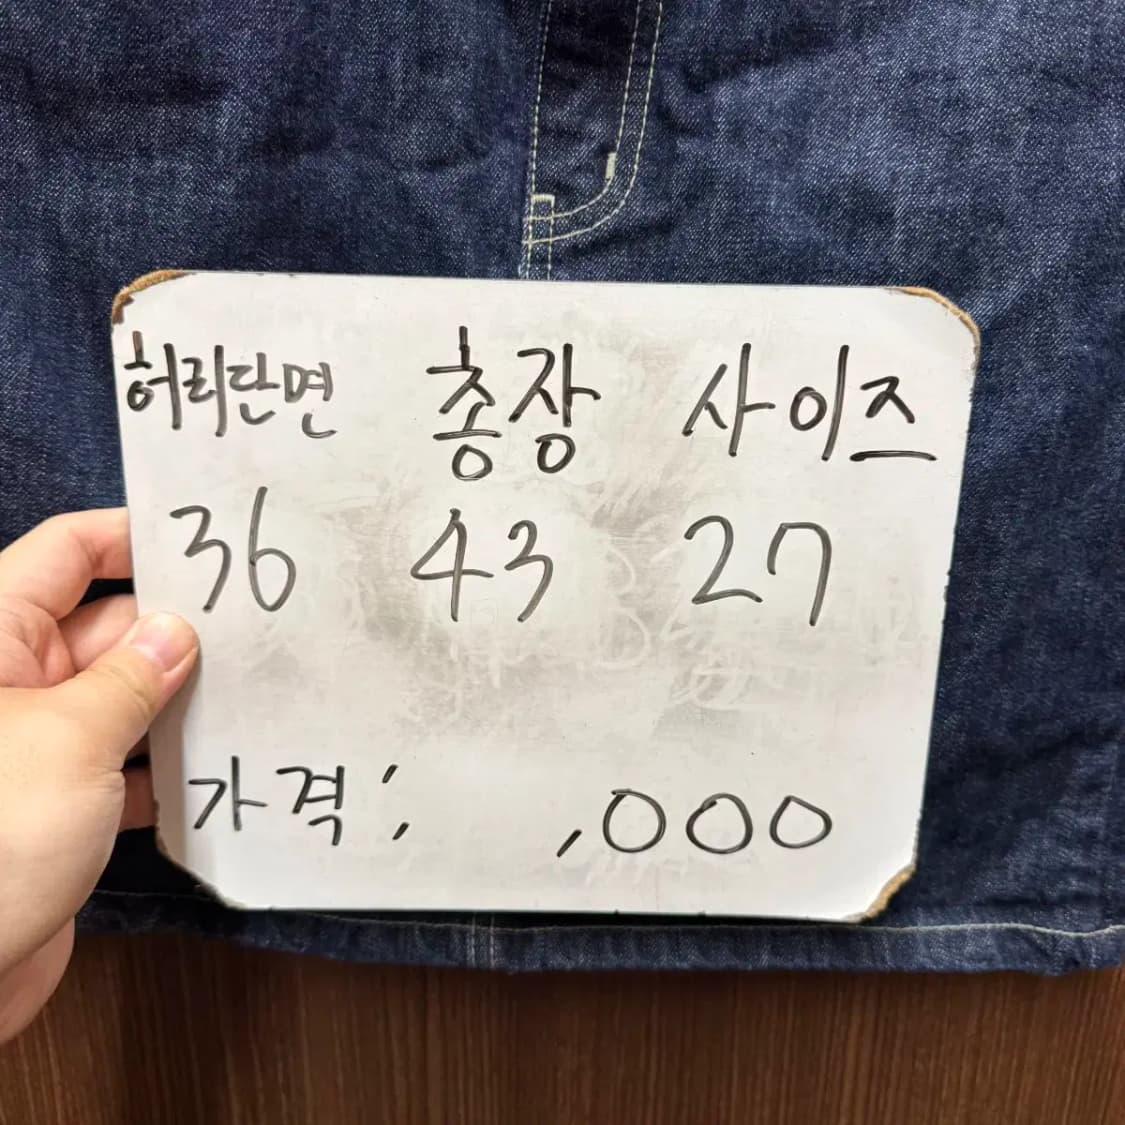 허리단면 총장 사이즈
36 43 27
가격: ,000